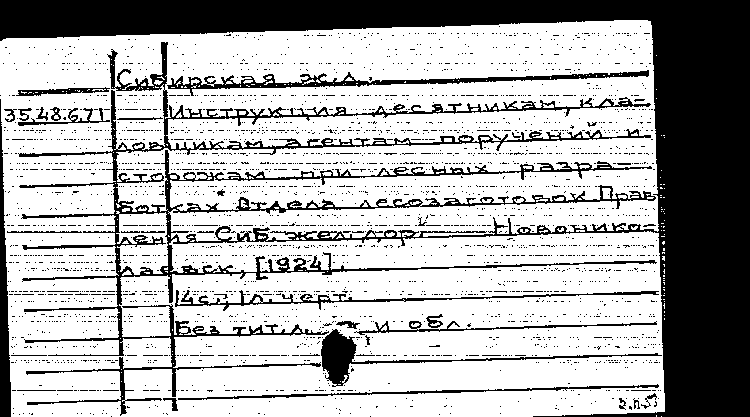 Сибирская ж.д.
35.48.6.71 Инструкция десятникам, кла-
довщикам, агентам поручений и
сторожам при лесных разра-
ботках Отдела лесозаготовок Прав
ления Сиб. жел. дор. Новонико-
лаевск, [1924].
14с.; 1л. черт.
Без тит. л. и обл.